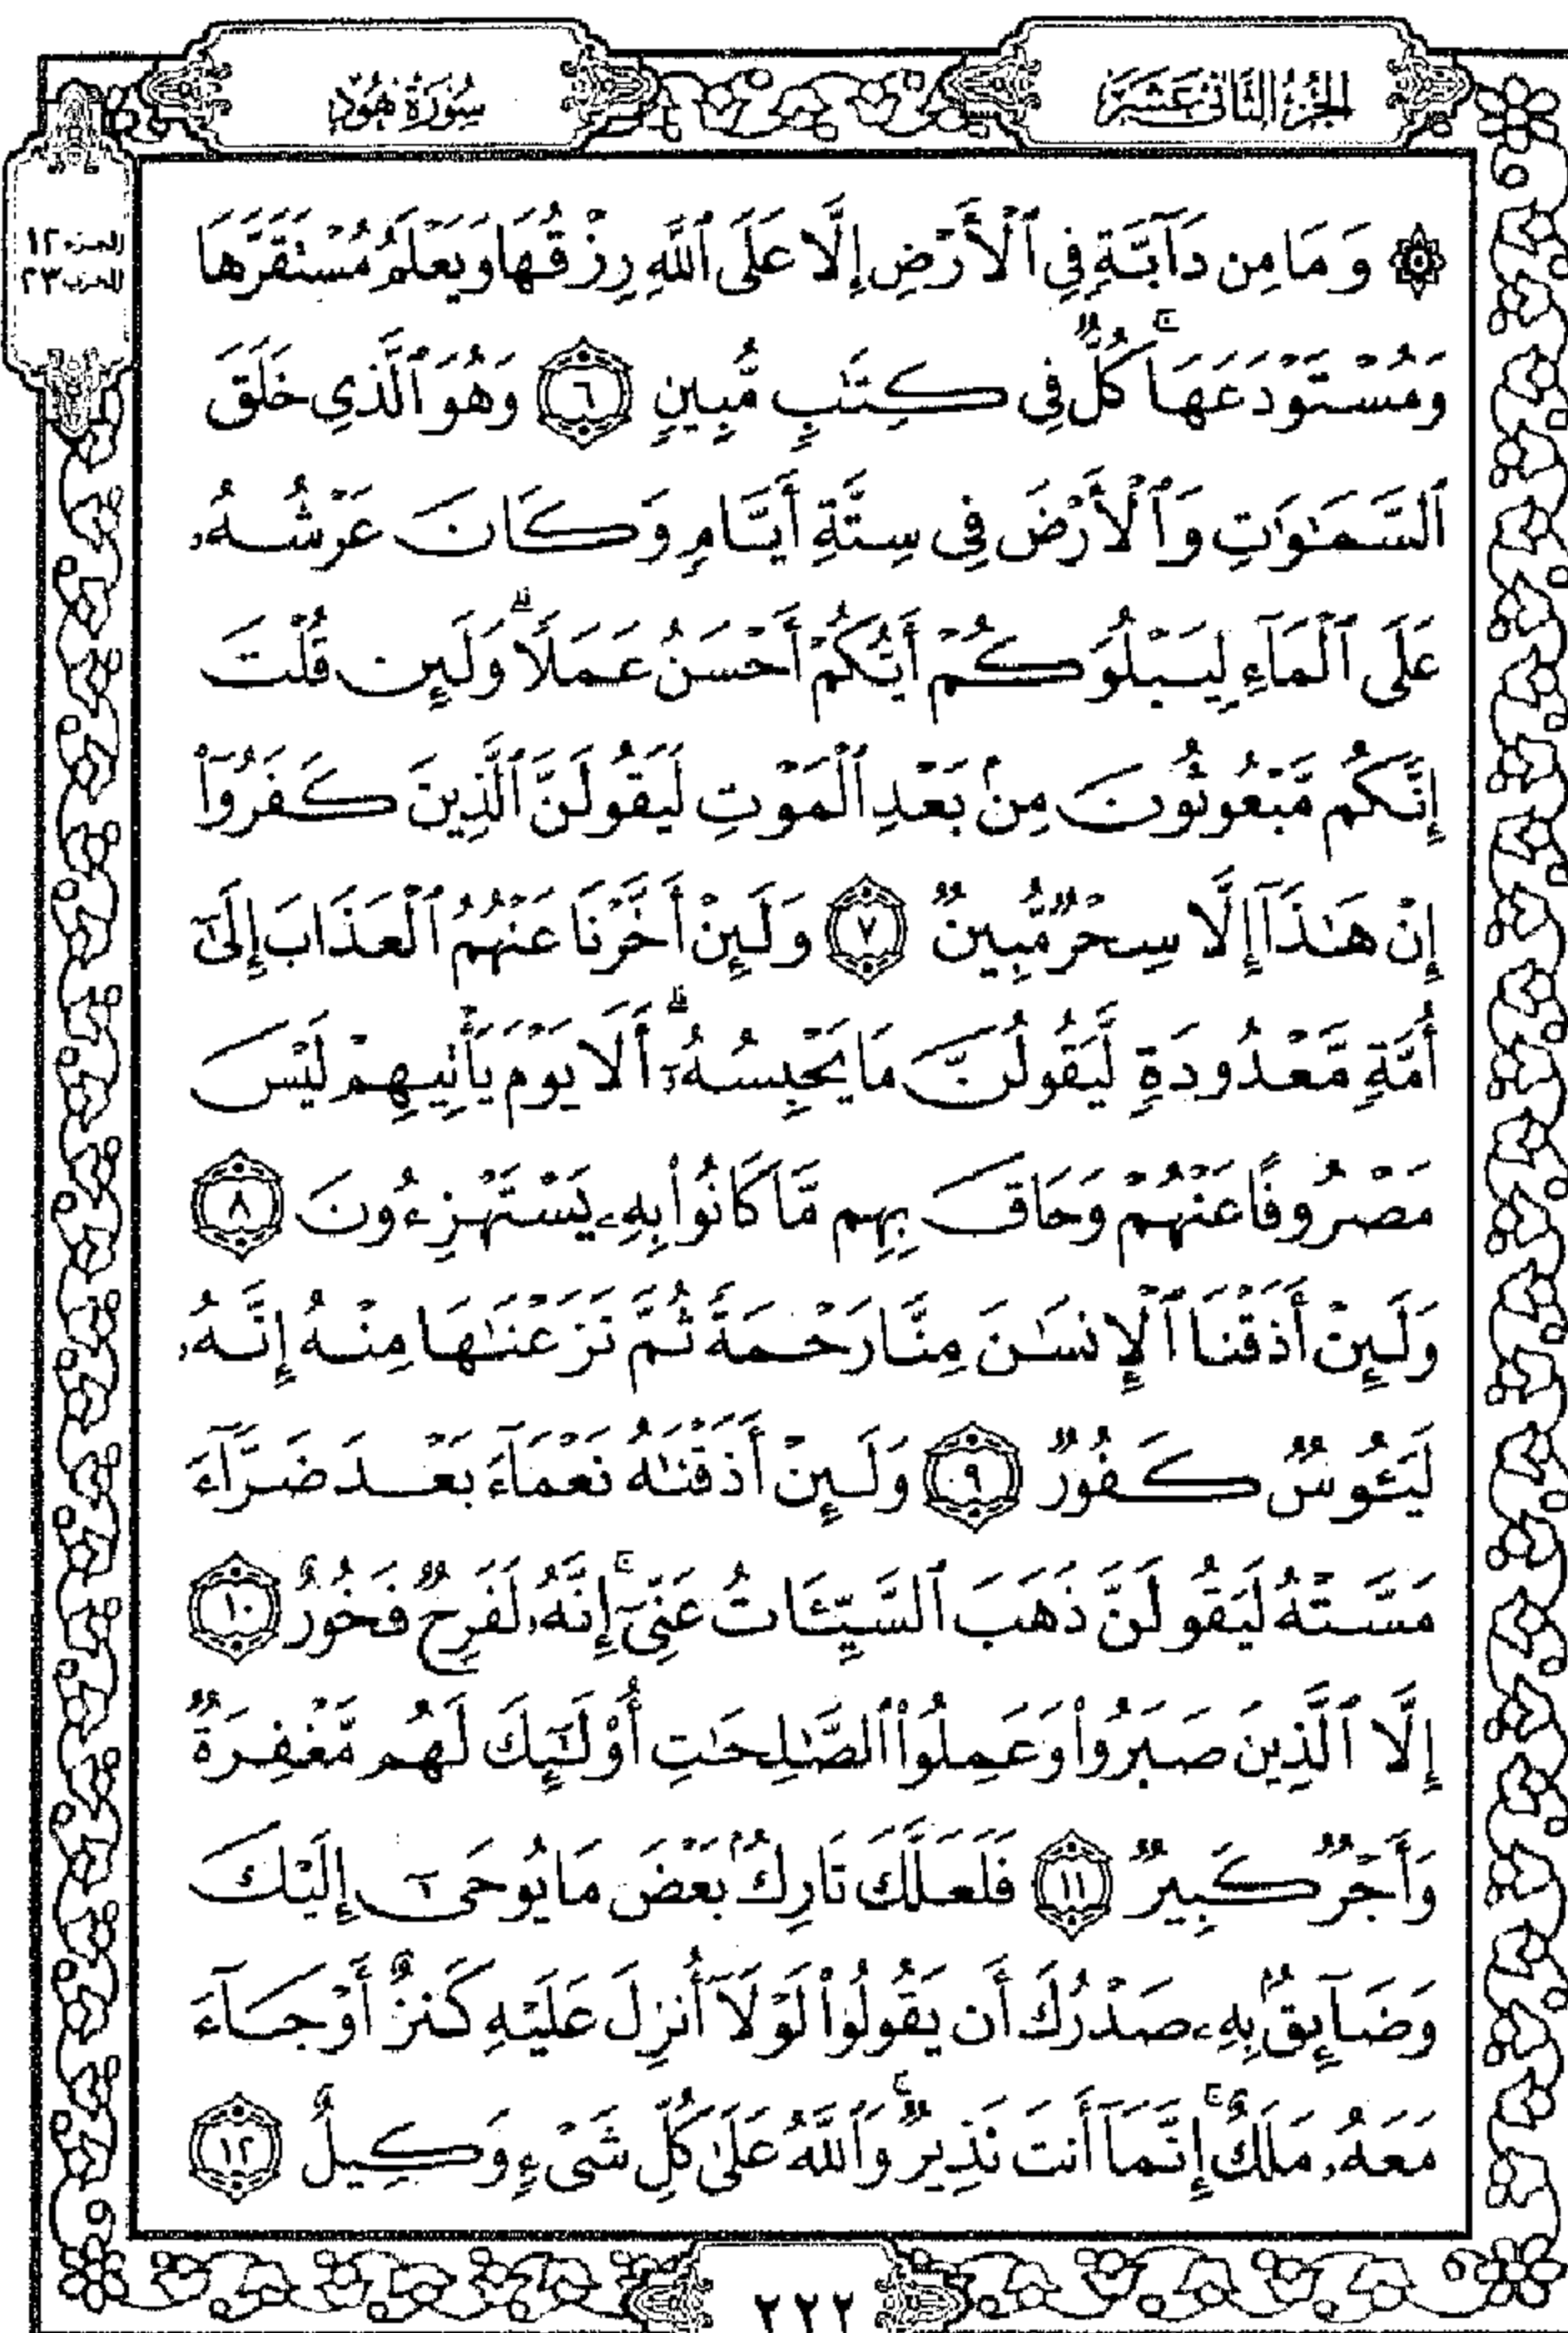 الجزء الثاني عشر
سورة هود
الجزء ١٢
الحزب ٢٣
۞ وَمَا مِن دَآبَّةٍ فِى ٱلْأَرْضِ إِلَّا عَلَى ٱللَّهِ رِزْقُهَا وَيَعْلَمُ مُسْتَقَرَّهَا
وَمُسْتَوْدَعَهَا ۚ كُلٌّ فِى كِتَٰبٍ مُّبِينٍ ٦ وَهُوَ ٱلَّذِى خَلَقَ
ٱلسَّمَٰوَٰتِ وَٱلْأَرْضَ فِى سِتَّةِ أَيَّامٍ وَكَانَ عَرْشُهُۥ
عَلَى ٱلْمَآءِ لِيَبْلُوَكُمْ أَيُّكُمْ أَحْسَنُ عَمَلًا ۗ وَلَئِن قُلْتَ
إِنَّكُم مَّبْعُوثُونَ مِنۢ بَعْدِ ٱلْمَوْتِ لَيَقُولَنَّ ٱلَّذِينَ كَفَرُوٓا۟
إِنْ هَٰذَآ إِلَّا سِحْرٌ مُّبِينٌ ٧ وَلَئِنْ أَخَّرْنَا عَنْهُمُ ٱلْعَذَابَ إِلَىٰٓ
أُمَّةٍ مَّعْدُودَةٍ لَّيَقُولُنَّ مَا يَحْبِسُهُۥٓ ۗ أَلَا يَوْمَ يَأْتِيهِمْ لَيْسَ
مَصْرُوفًا عَنْهُمْ وَحَاقَ بِهِم مَّا كَانُوا۟ بِهِۦ يَسْتَهْزِءُونَ ٨
وَلَئِنْ أَذَقْنَا ٱلْإِنسَٰنَ مِنَّا رَحْمَةً ثُمَّ نَزَعْنَٰهَا مِنْهُ إِنَّهُۥ
لَيَـُٔوسٌ كَفُورٌ ٩ وَلَئِنْ أَذَقْنَٰهُ نَعْمَآءَ بَعْدَ ضَرَّآءَ
مَسَّتْهُ لَيَقُولَنَّ ذَهَبَ ٱلسَّيِّـَٔاتُ عَنِّىٓ ۚ إِنَّهُۥ لَفَرِحٌ فَخُورٌ ١٠
إِلَّا ٱلَّذِينَ صَبَرُوا۟ وَعَمِلُوا۟ ٱلصَّٰلِحَٰتِ أُو۟لَٰٓئِكَ لَهُم مَّغْفِرَةٌ
وَأَجْرٌ كَبِيرٌ ١١ فَلَعَلَّكَ تَارِكٌۢ بَعْضَ مَا يُوحَىٰٓ إِلَيْكَ
وَضَآئِقٌۢ بِهِۦ صَدْرُكَ أَن يَقُولُوا۟ لَوْلَآ أُنزِلَ عَلَيْهِ كَنزٌ أَوْ جَآءَ
مَعَهُۥ مَلَكٌ ۚ إِنَّمَآ أَنتَ نَذِيرٌ ۚ وَٱللَّهُ عَلَىٰ كُلِّ شَىْءٍ وَكِيلٌ ١٢
٢٢٢